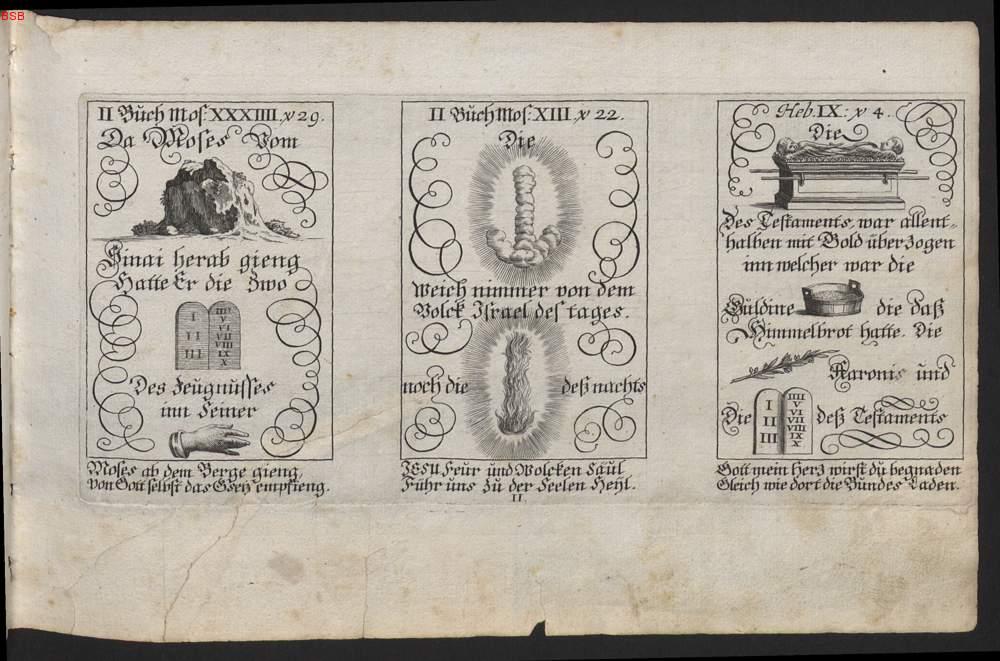 BSB
II Buch Mos: XXXIIII. v 29.
Da Moses Vom
Sinai herab gieng
Hatte Er die Zwo
I
II
III
IIII
V
VI
VII
VIII
IX
X
Des Zeugnusses
inn Seiner
Moses ab dem Berge gieng,
von Gott selbst das Gsetz empfieng.
II Buch Mos: XIII. v 22.
Die
Weich nimmer von dem
Volck Israel des tages.
noch die deß nachts
JESU Feur und Wolcken Säul
Führ uns zu der Seelen Heyl.
II.
Heb. IX: v 4.
Die
Des Testaments, war allent-
halben mit Gold überzogen
inn welcher war die
Güldine die daß
Himmelbrot hatte. Die
Aaronis und
Die deß Testaments
I
II
III
IIII
V
VI
VII
VIII
IX
X
Gott mein Herz wirst du begnaden
Gleich wie dort die Bundes Laden.